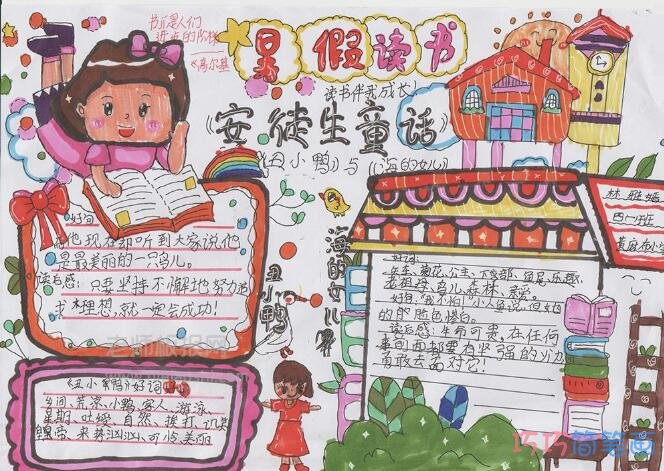 书是人们
进步的阶梯
《高尔基
暑假读书
读书伴我成长！
《安徒生童话》
《丑小鸭》与《海的女儿》
好句
他现在却听到大家说他
是最美丽的一只鸟儿。
读后感：只要坚持不懈地努力追
求理想,就一定会成功！
丑小鸭
《丑小鸭》好词
乡间、荒凉、小鸭、家人、游泳、
星期、吐绶、自然、挨打、讥笑
来势汹汹、可怜、美丽
海的女儿
好词
老祖母、鸟儿、森林、
好句："我不怕!"小人鱼说。但她
的脸色惨白。
读后感：生命可贵,在任何
事间面都要有坚强的
勇敢去面对它！
林雅婧
四(1)班
老师板报网
巧巧简笔画